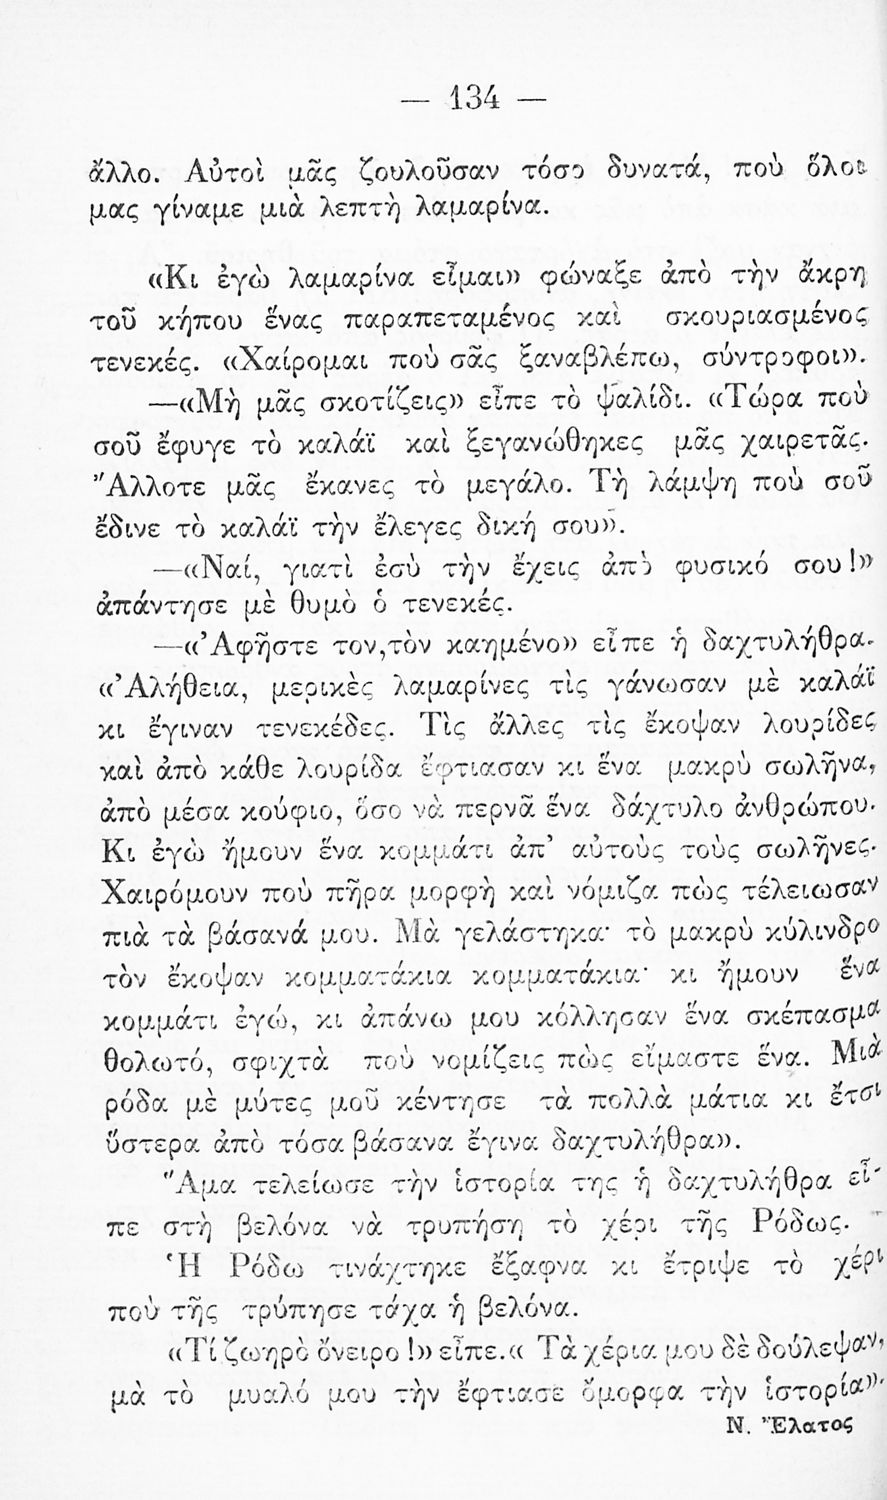 — 134 —
ἄλλο. Αὐτοὶ μᾶς ζουλοῦσαν τόσο δυνατά, ποὺ ὅλοι
μας γίναμε μιὰ λεπτὴ λαμαρίνα.
«Κι ἐγὼ λαμαρίνα εἶμαι» φώναξε ἀπὸ τὴν ἄκρη
τοῦ κήπου ἕνας παραπεταμένος καὶ σκουριασμένος
τενεκές. «Χαίρομαι ποὺ σᾶς ξαναβλέπω, σύντροφοι».
—«Μὴ μᾶς σκοτίζεις» εἶπε τὸ ψαλίδι. «Τώρα ποὺ
σοῦ ἔφυγε τὸ καλάϊ καὶ ξεγανώθηκες μᾶς χαιρετᾶς.
Ἄλλοτε μᾶς ἔκανες τὸ μεγάλο. Τὴ λάμψη ποὺ σοῦ
ἔδινε τὸ καλάϊ τὴν ἔλεγες δική σου».
—«Ναί, γιατὶ ἐσὺ τὴν ἔχεις ἀπὸ φυσικό σου!»
ἀπάντησε μὲ θυμὸ ὁ τενεκές.
—«Ἀφῆστε τον,τὸν καημένο» εἶπε ἡ δαχτυλήθρα.
«Ἀλήθεια, μερικὲς λαμαρίνες τὶς γάνωσαν μὲ καλάϊ
κι ἔγιναν τενεκέδες. Τὶς ἄλλες τὶς ἔκοψαν λουρίδες
καὶ ἀπὸ κάθε λουρίδα ἔφτιασαν κι ἕνα μακρὺ σωλῆνα,
ἀπὸ μέσα κούφιο, ὅσο νὰ περνᾶ ἕνα δάχτυλο ἀνθρώπου.
Κι ἐγὼ ἤμουν ἕνα κομμάτι ἀπ’ αὐτοὺς τοὺς σωλῆνες.
Χαιρόμουν ποὺ πῆρα μορφὴ καὶ νόμιζα πὼς τέλειωσαν
πιὰ τὰ βάσανά μου. Μὰ γελάστηκα· τὸ μακρὺ κύλινδρο
τὸν ἔκοψαν κομματάκια κομματάκια· κι ἤμουν ἕνα
κομμάτι ἐγώ, κι ἀπάνω μου κόλλησαν ἕνα σκέπασμα
θολωτό, σφιχτὰ ποὺ νομίζεις πὼς εἴμαστε ἕνα. Μιὰ
ρόδα μὲ μύτες μοῦ κέντησε τὰ πολλὰ μάτια κι ἔτσι
ὕστερα ἀπὸ τόσα βάσανα ἔγινα δαχτυλήθρα».
Ἅμα τελείωσε τὴν ἱστορία της ἡ δαχτυλήθρα εἶ-
πε στὴ βελόνα νὰ τρυπήση τὸ χέρι τῆς Ρόδως.
Ἡ Ρόδω τινάχτηκε ἔξαφνα κι ἔτριψε τὸ χέρι
ποὺ τῆς τρύπησε τάχα ἡ βελόνα.
«Τί ζωηρὸ ὄνειρο!» εἶπε.« Τὰ χέρια μου δὲ δούλεψαν,
μὰ τὸ μυαλό μου τὴν ἔφτιασε ὄμορφα τὴν ἱστορία».
Ν. Ἔλατος